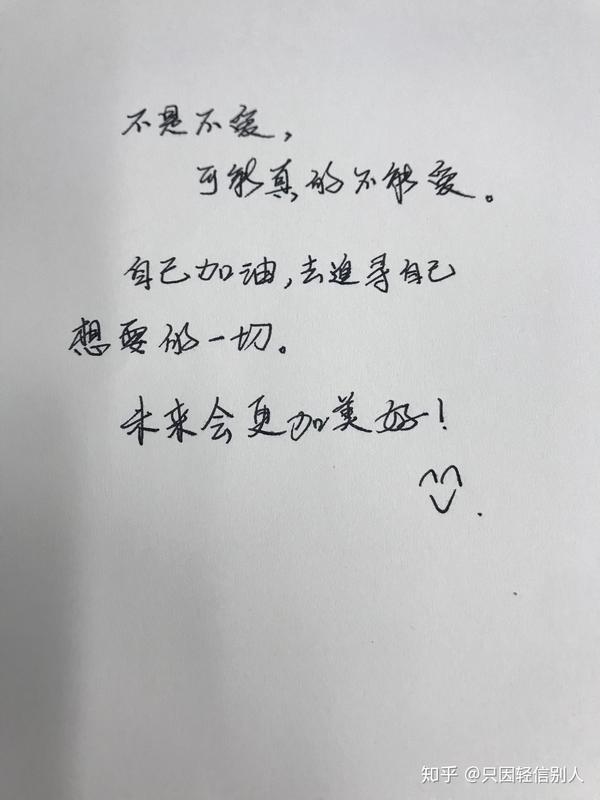 不是不爱，
可能真的不能爱。
自己加油，去追寻自己
想要的一切。
未来会更加美好！
知乎 @只因轻信别人